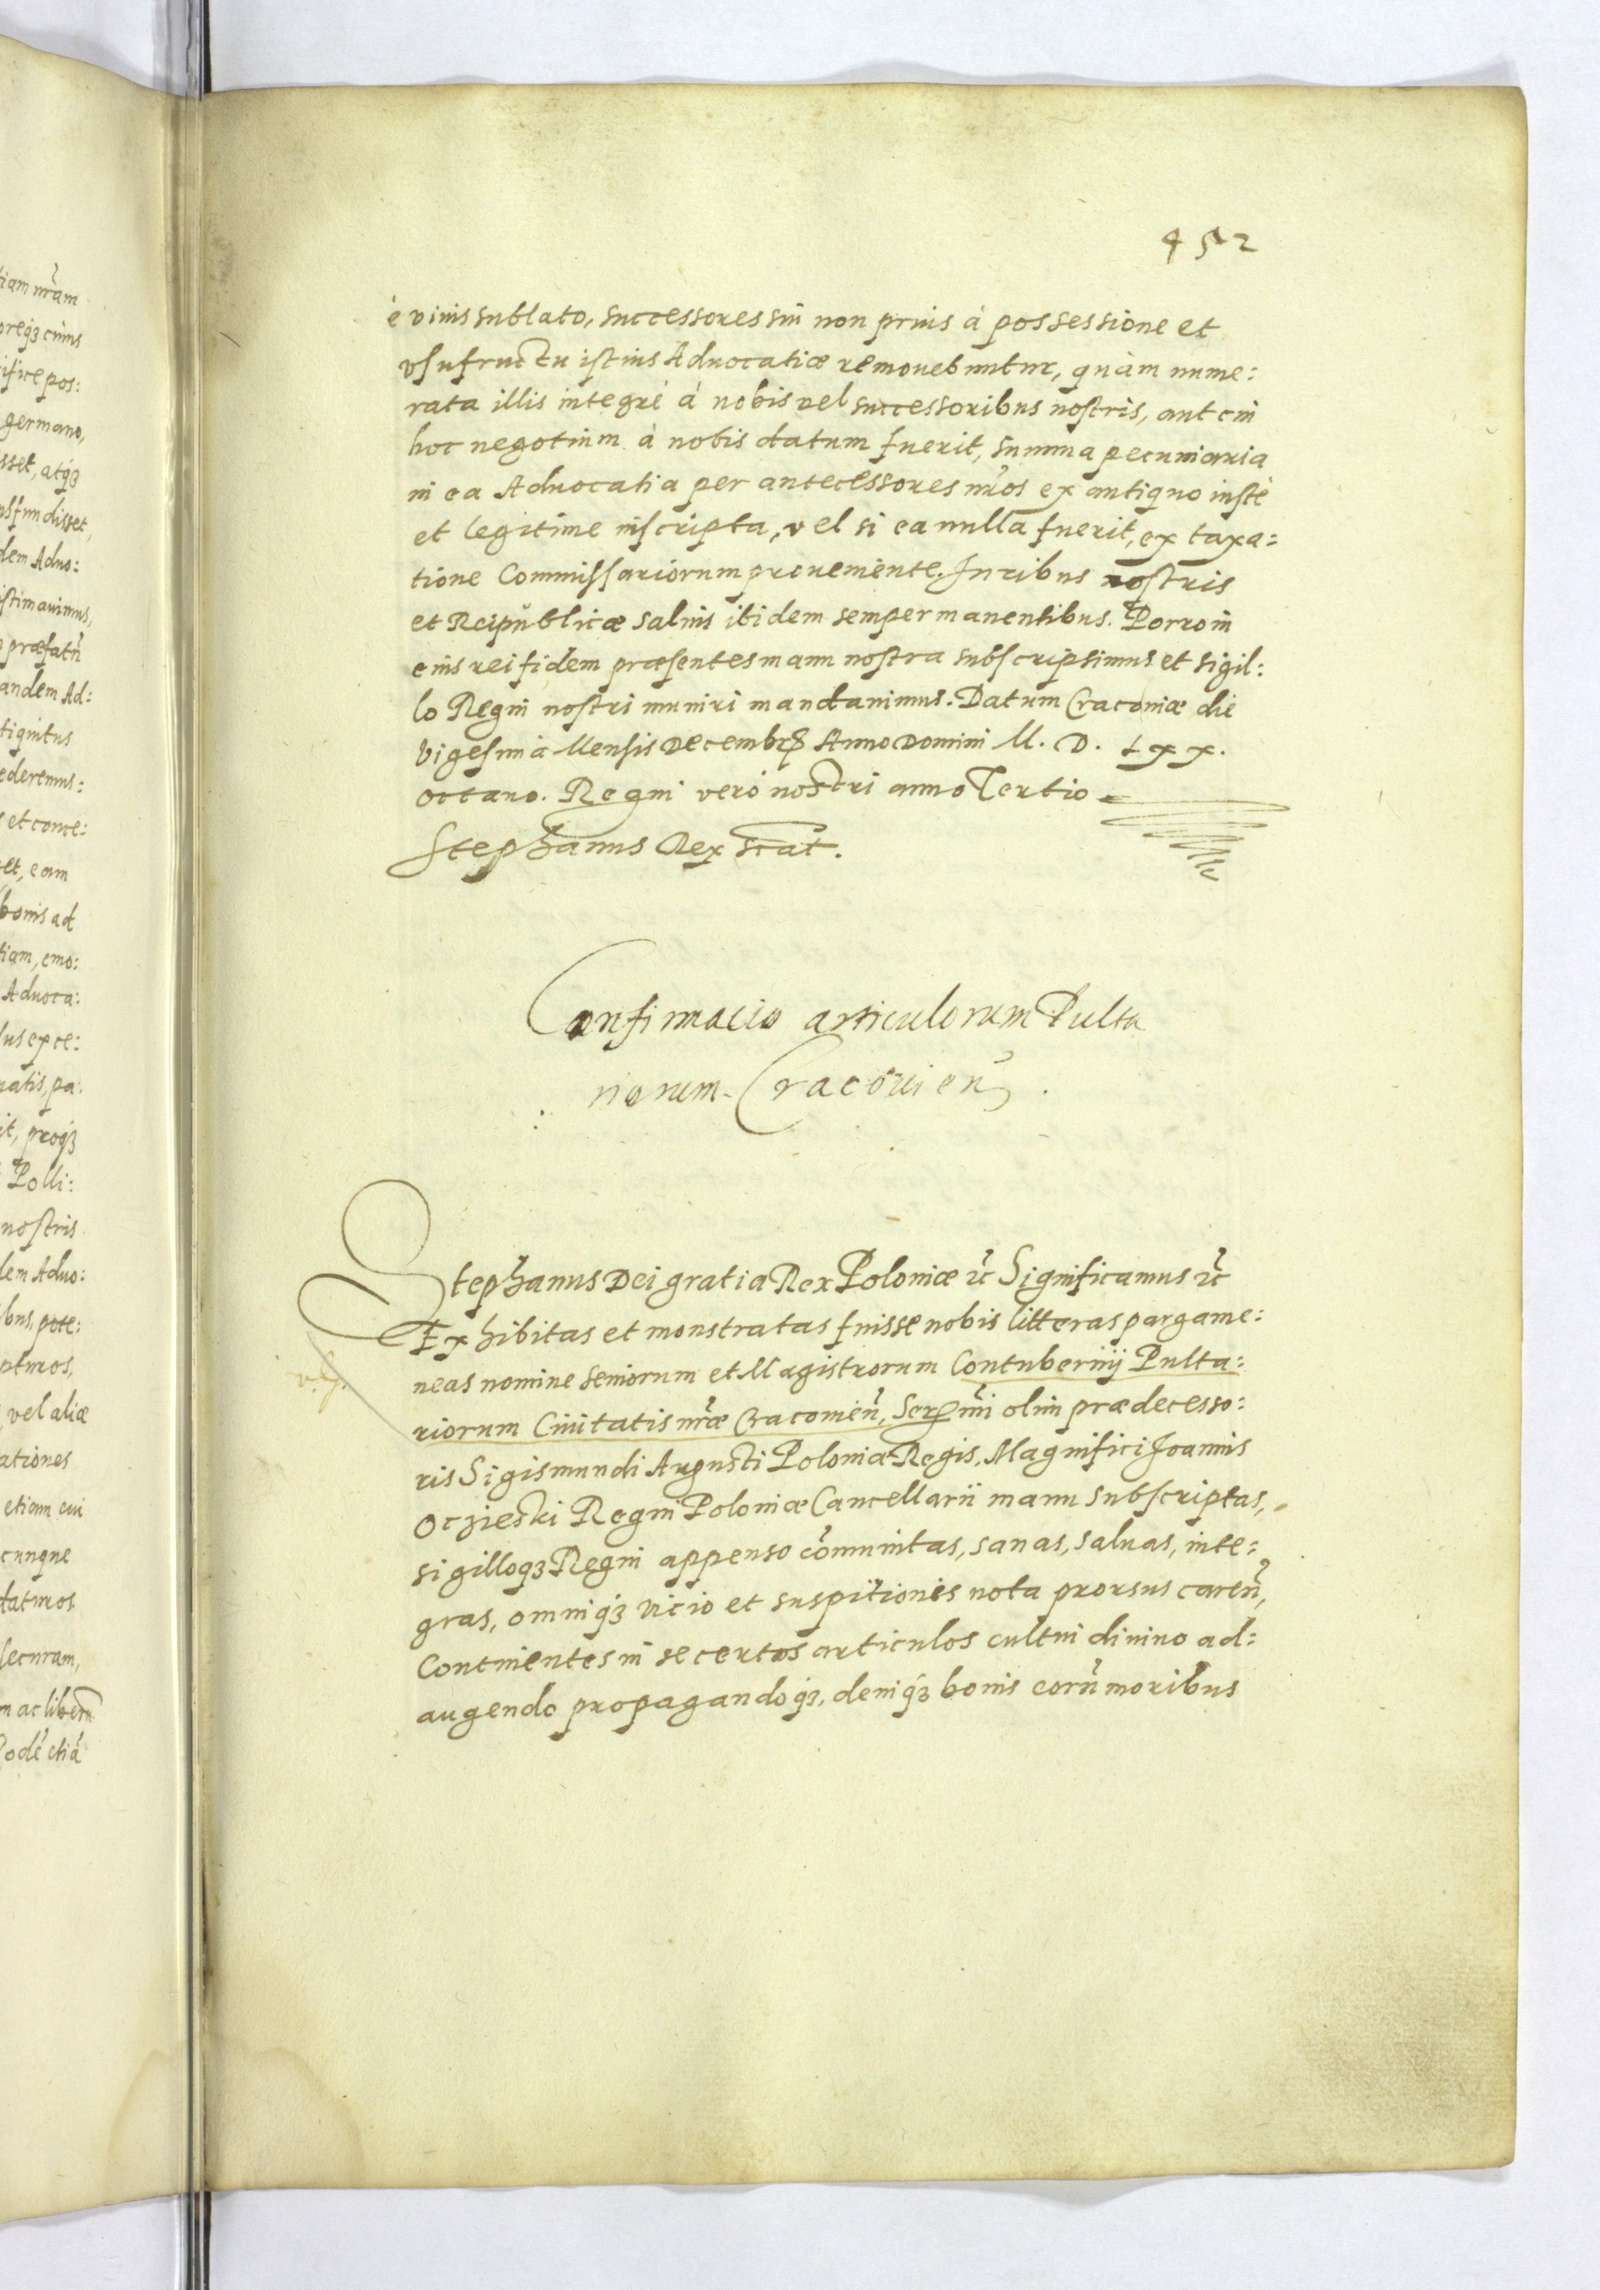 452
è viuis sublato, successores sui non prius à possessione et
vsufructu istius Aduocatiæ remouebuntur, quàm nume:
rata illis integrè à nobis vel successoribus nostris, aut cui
hoc negotium à nobis datum fuerit, summa pecuniaria
in ea Aduocatia per antecessores nr̃os ex antiquo iustè
et legitime inscripta, vel si ea nulla fuerit, ex taxa:
tione Commissariorum proueniente. Iuribus nostris
et Reipublicæ saluis ibidem semper manentibus. Porro in
eius rei fidem præsentes manu nostra subscripsimus et sigil:
lo Regni nostri muniri mandauimus. Datum Cracouiæ die
Vigesima Mensis Decembrꝭ Anno Domini M. D. Lxx.
octauo. Regni verò nostri anno Tertio
Stephanus Rex scat.
Confirmacio articulorum Pulta
norum Cracouien̄
Stephanus Dei gratia Rex Poloniæ etc̃ Significamus etc̃
Exhibitas et monstratas fuisse nobis litteras pargame:
neas nomine seniorum et Magistrorum Contubernij Pulta:
riorum Ciuitatis nr̃æ Cracouien̄, Serꝑmi olim prædecesso:
ris Sigismundi Augusti Poloniæ Regis, Magnifici Joannis
Oczieski Regni Poloniæ Cancellarii manu subscriptas,
sigilloqꝫ Regni appenso cõmunitas, sanas, saluas, inte:
gras, omniqꝫ vicio et suspitionis nota prorsus caren̄,
Continentes in se certos articulos cultui diuino ad:
augendo propagandoqꝫ, deniqꝫ bonis eorũ moribus
tiam nr̃am
germano,
atqꝫ
dem Aduo:
præfatũ
andem Ad:
et conce:
eam
bonis ad
tiam, emo:
Aduoca:
proqꝫ
Polli:
nostris
dem Aduo:
vel aliæ
etiam cui
cunque
ac liberũ